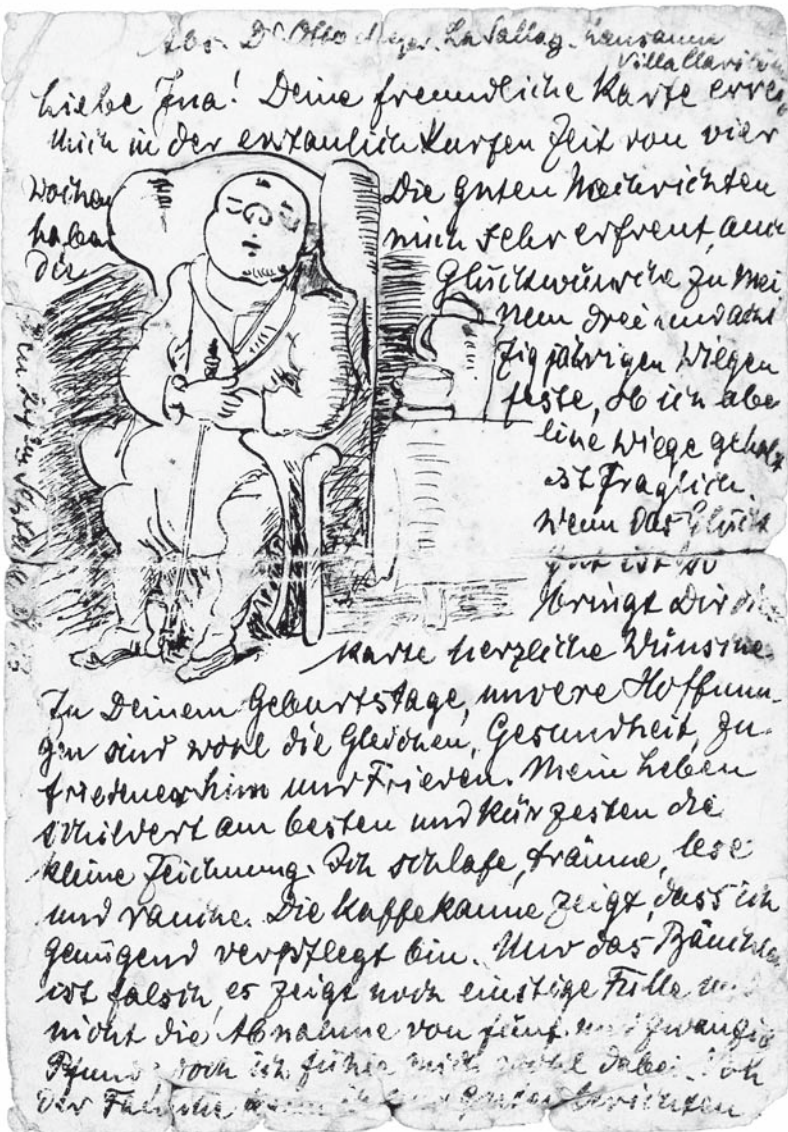 Abs. Dr. Otto Meyer. La Sallaz. Lausanne
Villa
Liebe Ina! Deine freundliche Karte errei
mich in der erstaunlich kurzen Zeit von vier
Wochen Die guten Nachrichten
haben mich sehr erfreut, auch
die Glückwünsche zu mei
nem drei und acht
zigjährigen Wiegen
feste, ob ich aber
eine Wiege gehabt
ist fraglich.
Wenn das Glück
gut ist so
bringt Dir die
Karte herzliche Wünsche
Zu Deinem Geburtstage, unsere Hoffnun-
gen sind wohl die Gleichen, Gesundheit, Zu-
friedenheit und Frieden. Mein Leben
schildert am besten und kürzesten die
kleine Zeichnung. Ich schlafe, träume, lese
und rauche. Die Kaffekanne zeigt, dass ich
genügend verpflegt bin. Nur das Bäuchlein
ist falsch, es zeigt noch einstige Fülle
nicht die Abnahme von fünf und zwanzig
Pfund, doch ich fühle mich wohl dabei. Von
der kann ich nur Gutes berichten